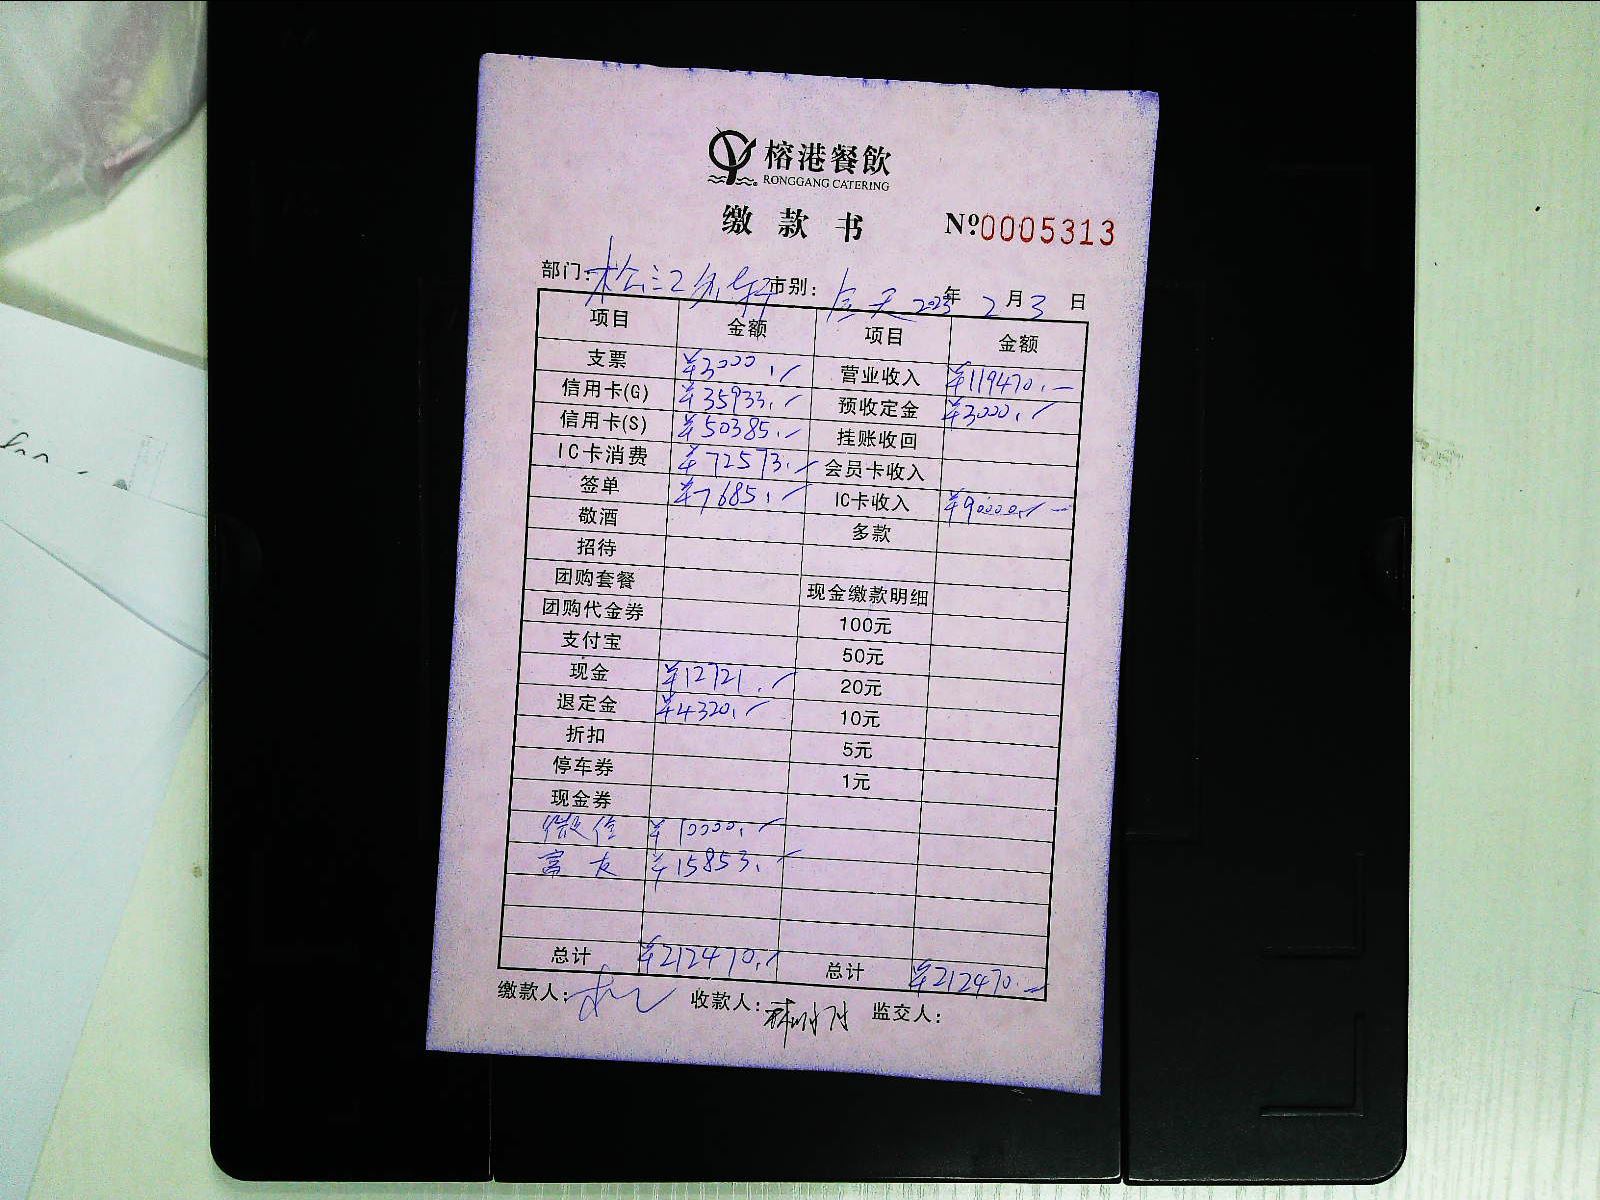 榕港餐飲
RONGGANG CATERING
缴款书 Nº0005313
部门: 松江 轩 市别: 全天 2023年 2月3日
项目 金额 项目 金额
支票 ¥3000.- 营业收入 ¥119470.-
信用卡(G) ¥35933.- 预收定金 ¥3000.-
信用卡(S) ¥50385.- 挂账收回
IC卡消费 ¥72573.- 会员卡收入
签单 ¥7685.- IC卡收入 ¥90000.-
敬酒 多款
招待
团购套餐 现金缴款明细
团购代金券 100元
支付宝 50元
现金 ¥12721.- 20元
退定金 ¥4320.- 10元
折扣 5元
停车券 1元
现金券
微信 ¥10000.-
富友 ¥15853.-
总计 ¥212470.- 总计 ¥212470.-
缴款人: 收款人: 监交人: